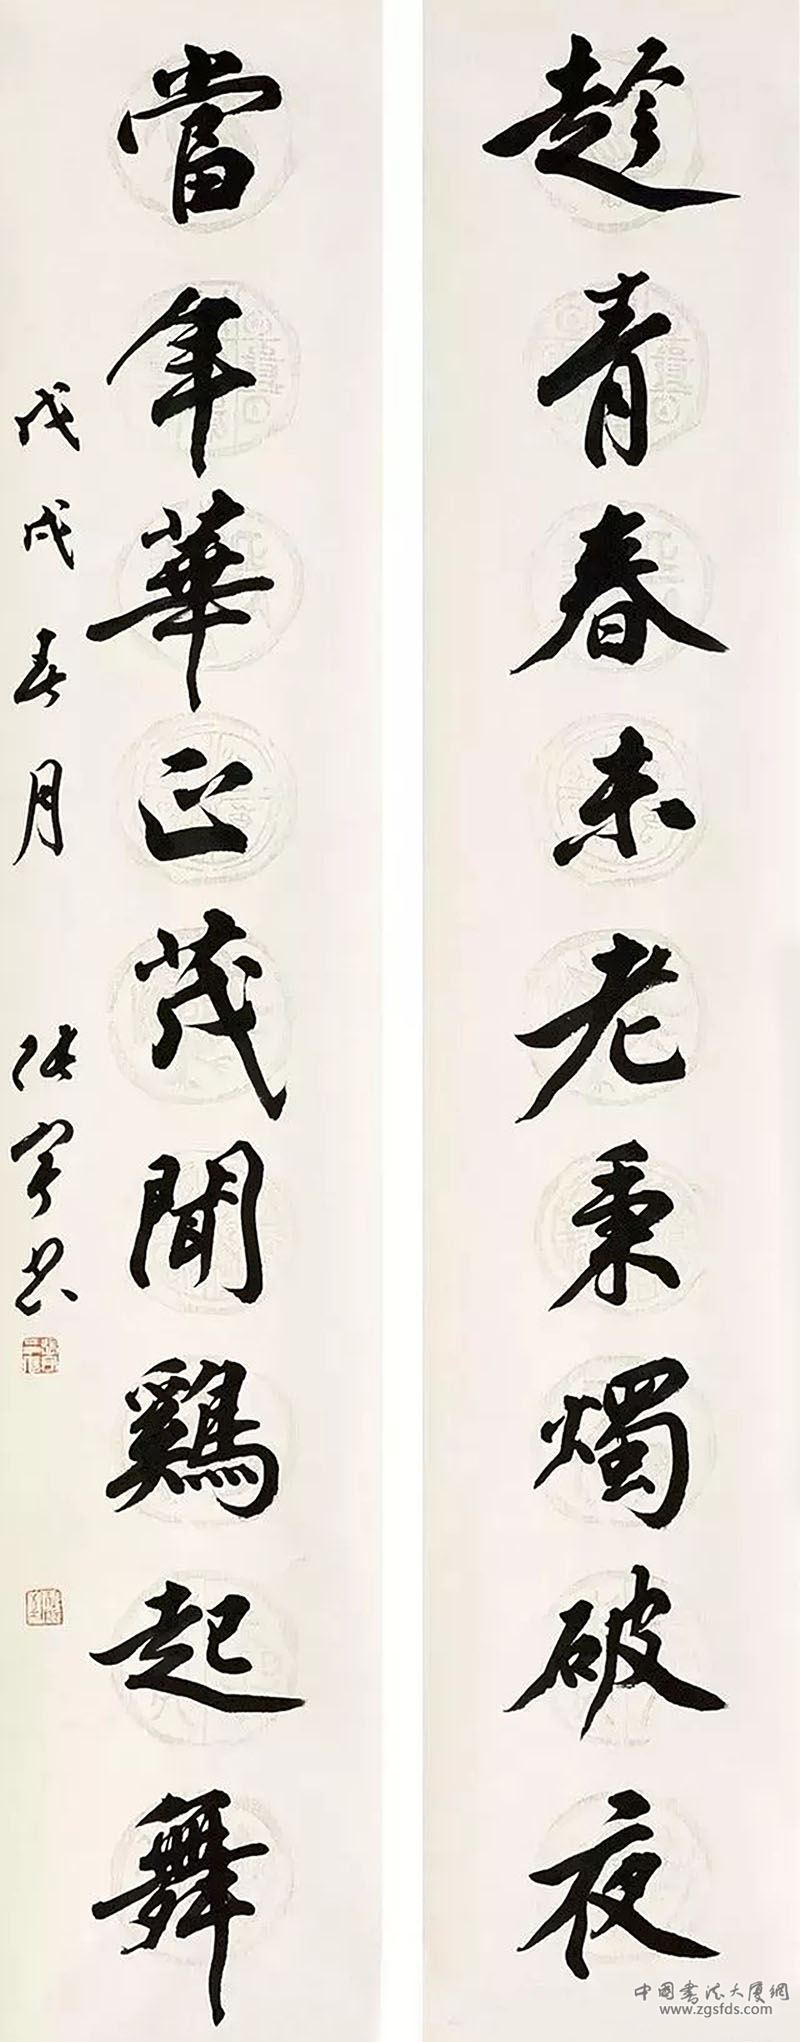 趁青春未老秉燭破夜
當年華正茂聞鷄起舞
戊戌春月 張宇書
中国书法大厦網
www.zgsfds.com